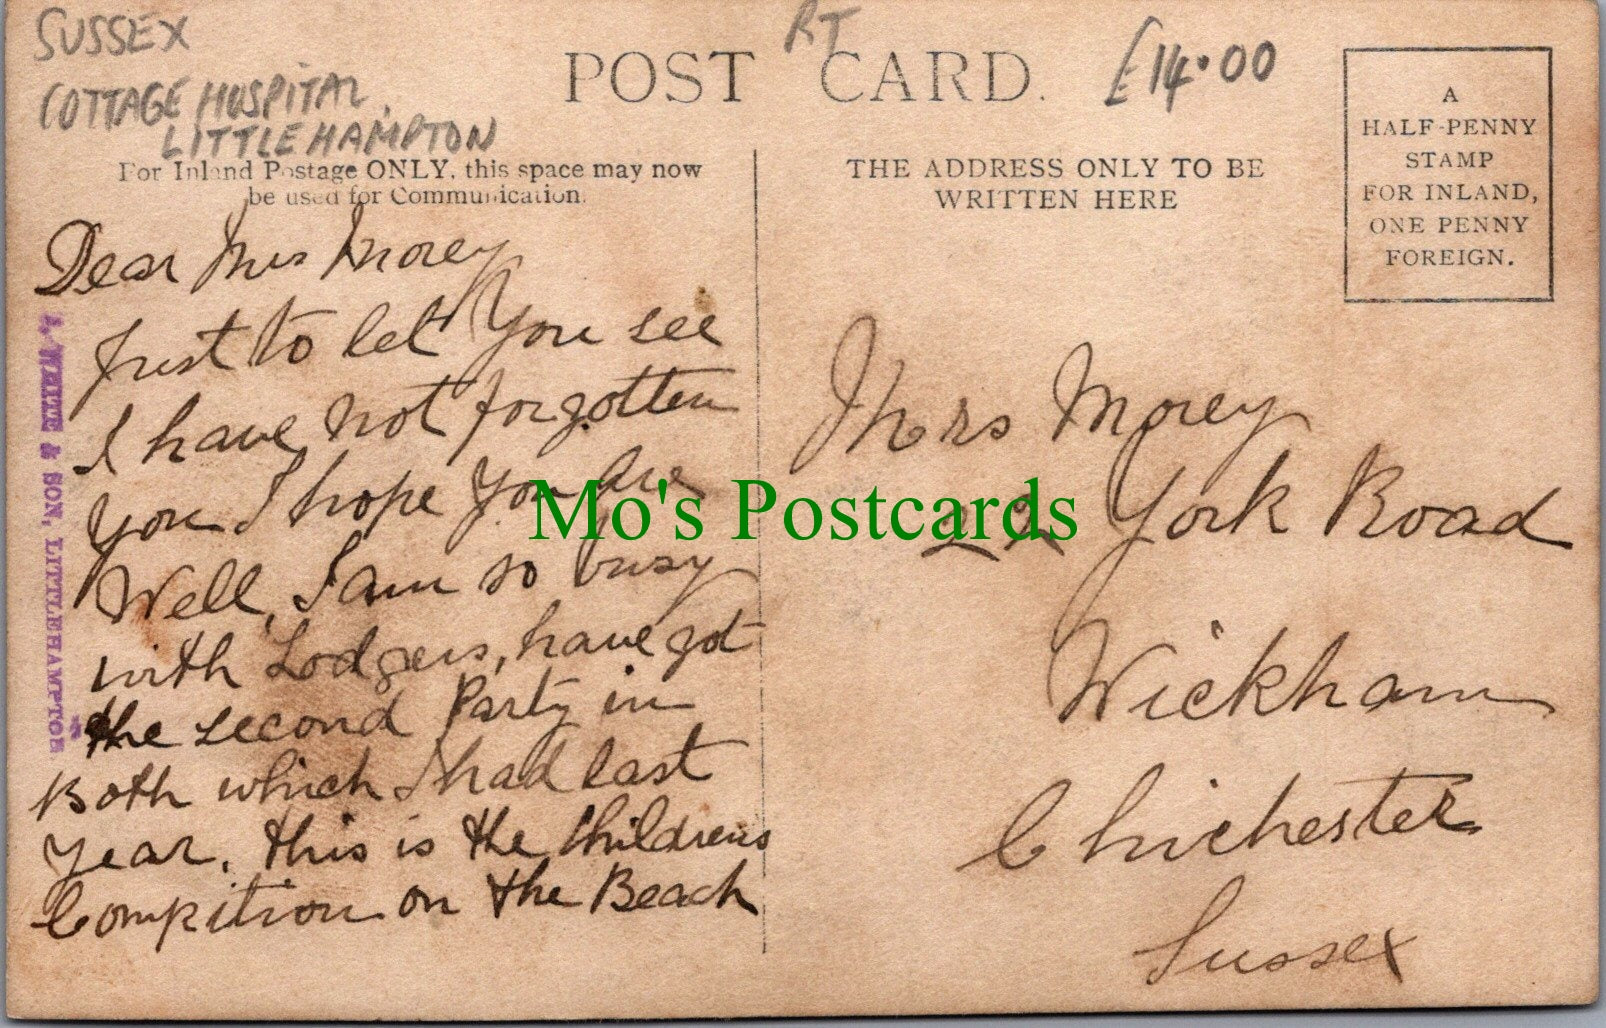 SUSSEX
COTTAGE HOSPITAL,
LITTLEHAMPTON
RT
£14.00
POST CARD.
For Inland Postage ONLY, this space may now
be used for Communication.
THE ADDRESS ONLY TO BE
WRITTEN HERE
A
HALF-PENNY
STAMP
FOR INLAND,
ONE PENNY
FOREIGN.
WHITE & SON, LITTLEHAMPTON
Dear Mrs Morey
Just to let You see
I have not forgotten
you I hope you are
Well, I am so busy
with Lodgers, have got
the second Party in
Both which I had last
Year. this is the Childrens
Compition on the Beach
Mrs Morey
York Road
Wickham
Chichester
Sussex
Mo's Postcards